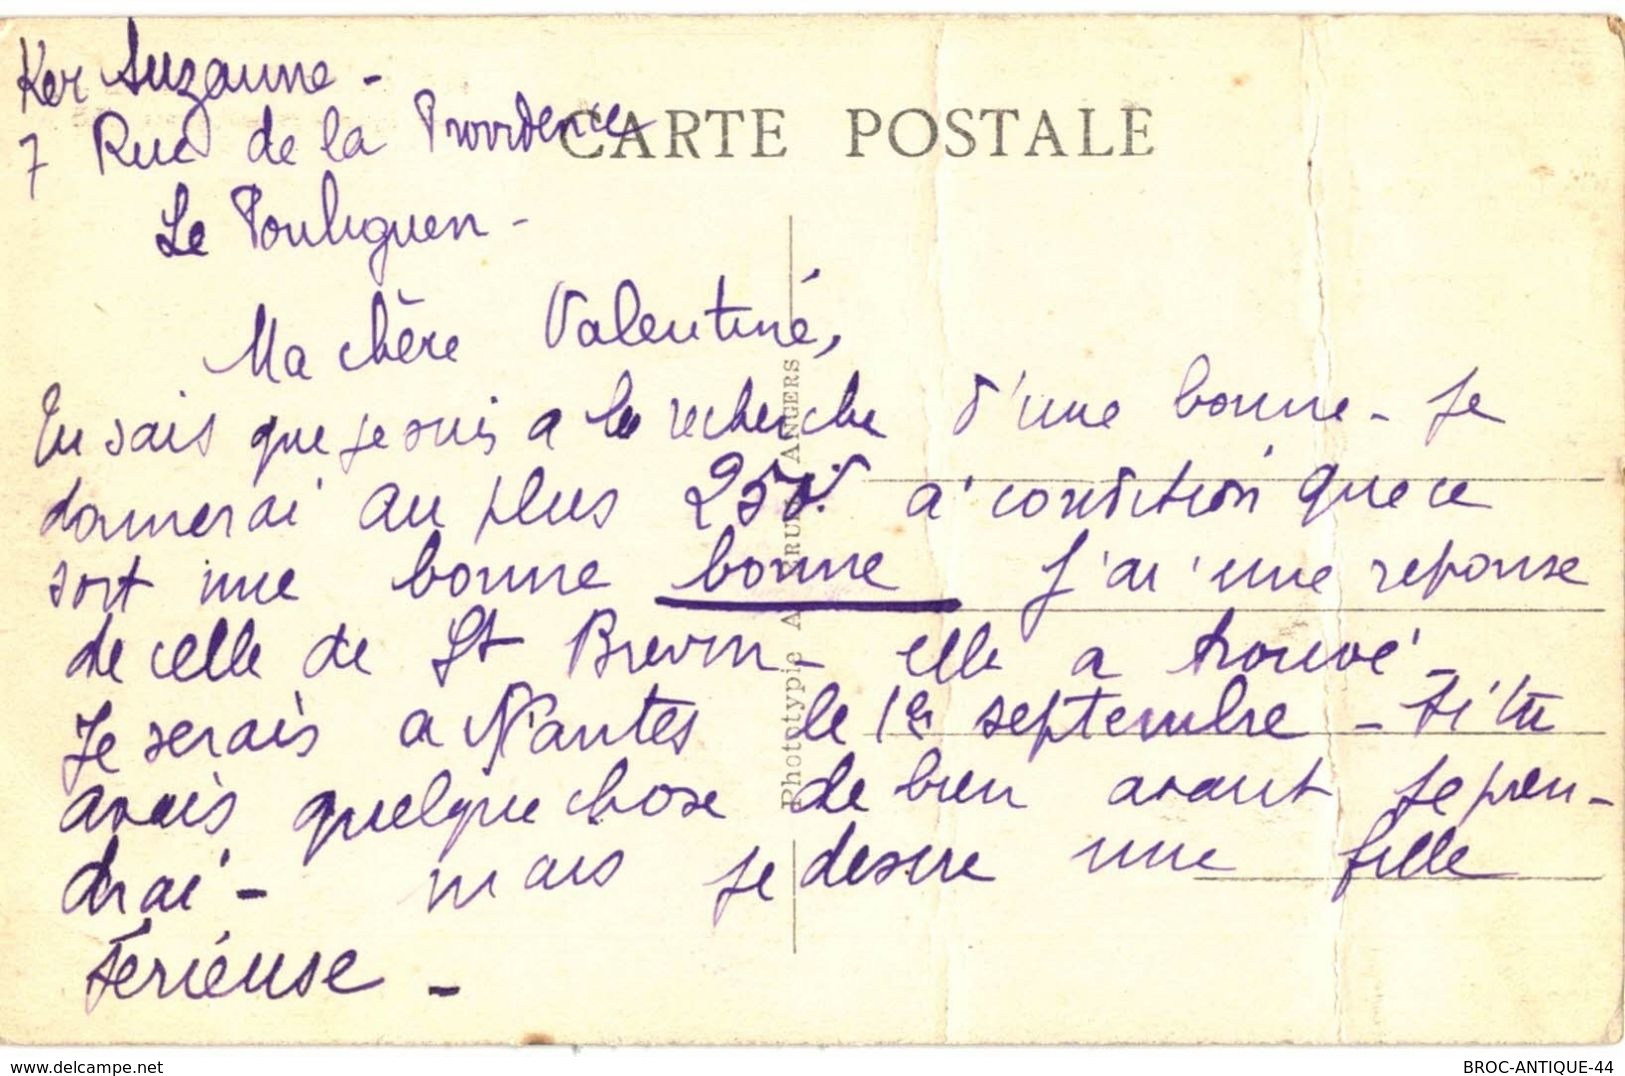 Ker Suzanne -
7 Rue de la Providence
CARTE POSTALE
Le Pouliguen -
Ma chère Valentine,
Tu sais que je suis a la recherche d'une bonne - Je
donnerai au plus 250 à condition que ce
soit une bonne bonne J'ai une reponse
de celle de St Brevin - elle a trouvé -
Je serais a Nantes le 1er septembre - si tu
avais quelque chose de bien avant je pren-
drai - mais je desire une fille
sérieuse -
Phototypie A. BRUEL ANGERS
delcampe.net
BROC-ANTIQUE-44